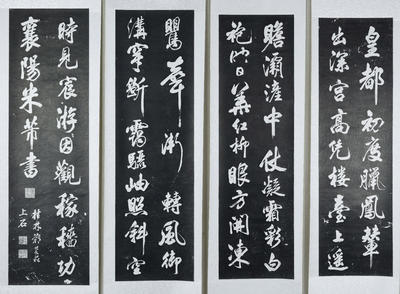 皇都初度臘鳳輦
出深宮高凭樓臺上遥
瞻灞滻中仗凝霜彩白
袍映日華紅柳眼方開凍
鸎聲漸轉風御
溝穿斷靄驪岫照斜空
時見宸游因觀稼穡功
襄陽米芾書
上石